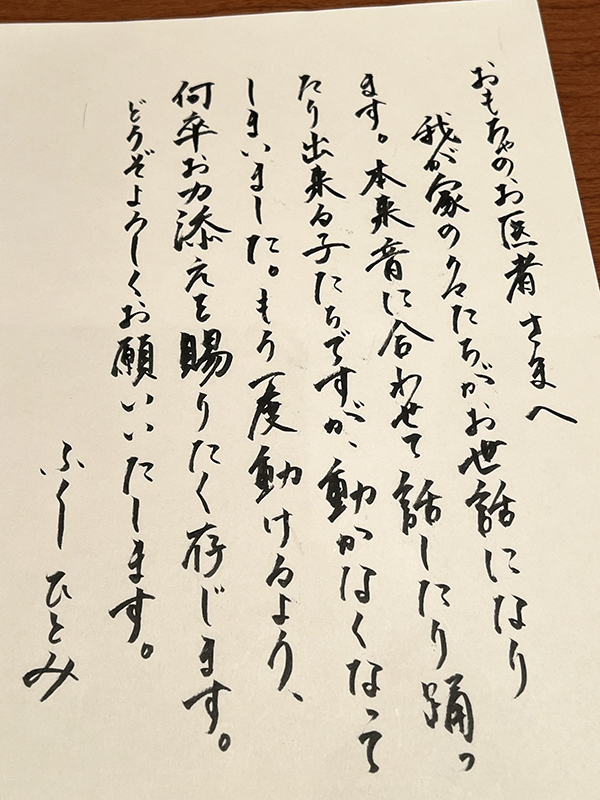 おもちゃのお医者さまへ
我が家のたちがお世話になり
ます。本来音に合わせて話したり踊っ
たり出来る子たちですが、動かなくなって
しまいました。もう一度動けるよう、
何卒お力添えを賜りたく存じます。
どうぞよろしくお願いいたします。
ふくしひとみ